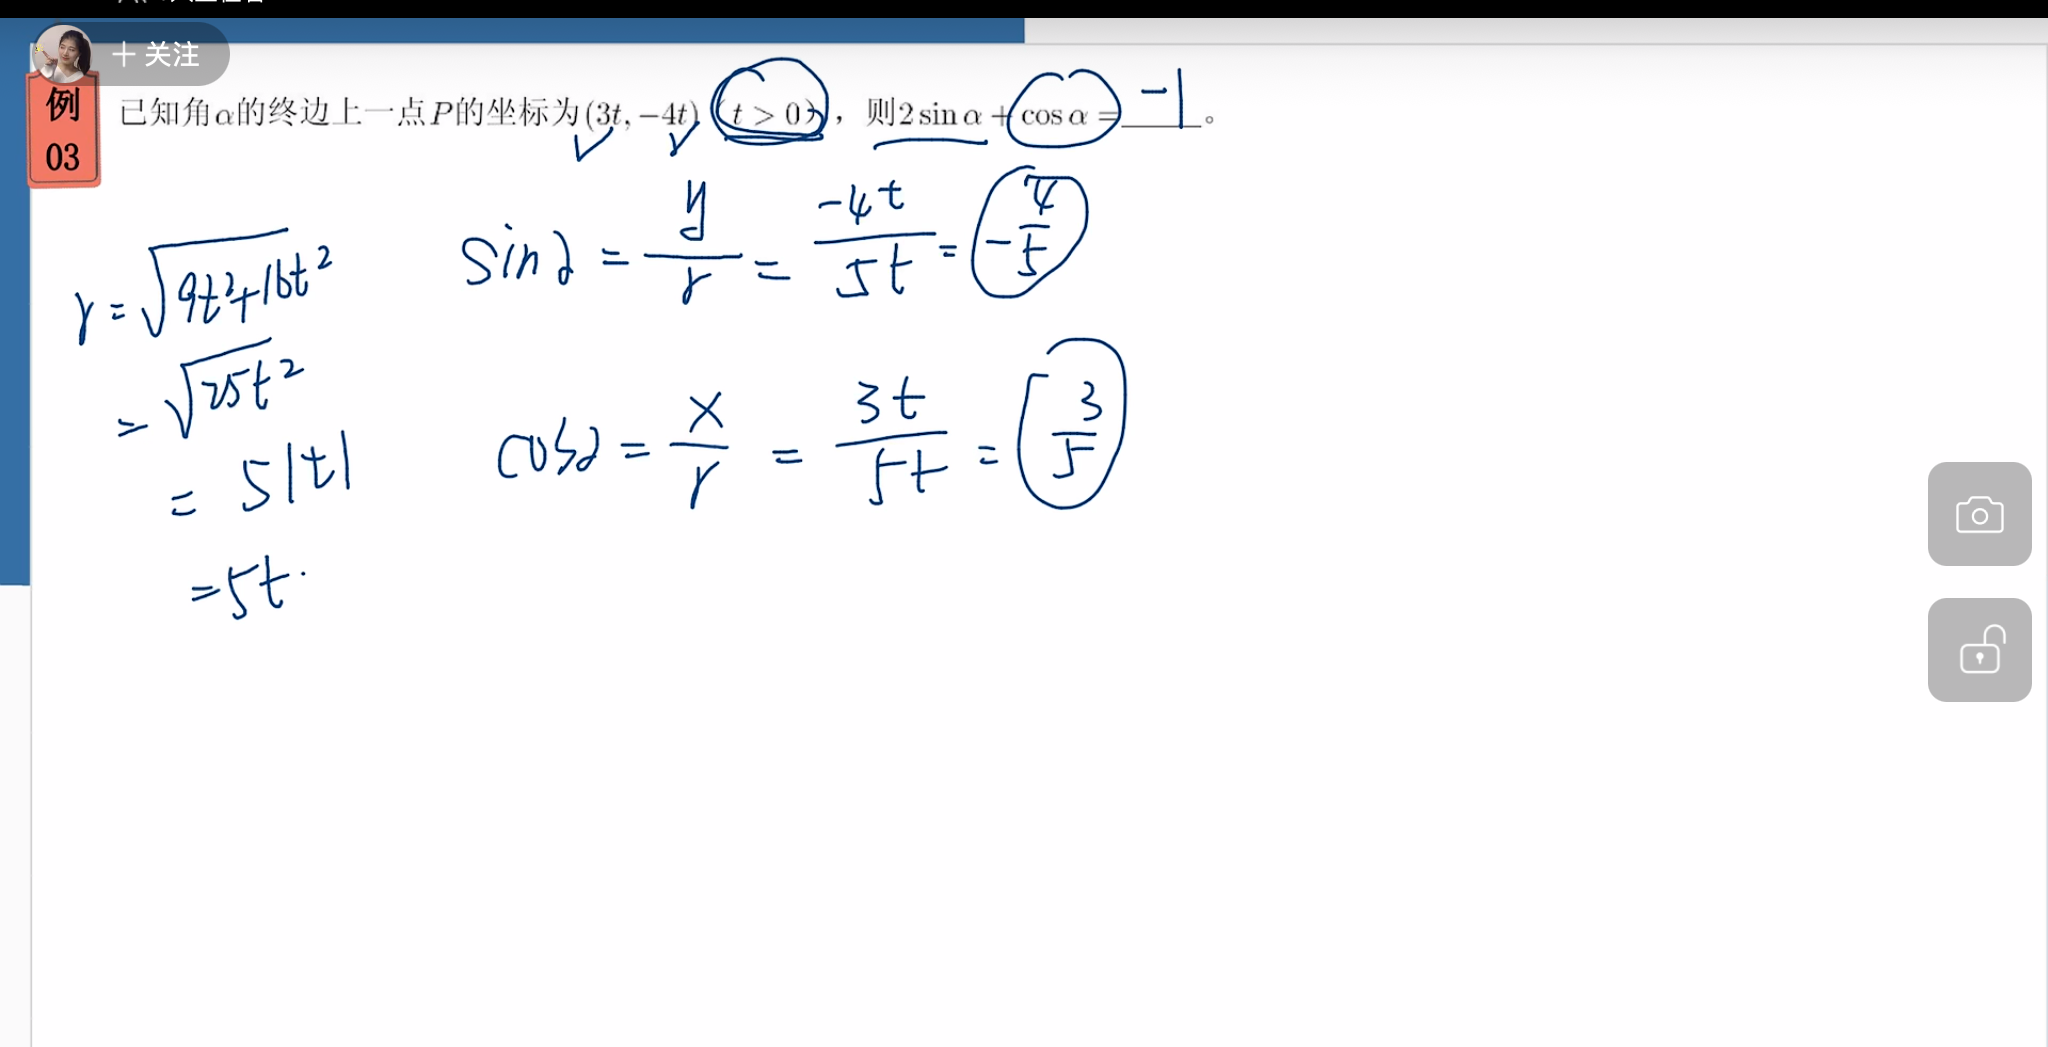 关注
例
03
已知角α的终边上一点P的坐标为(3t, -4t) (t > 0)，则2 sin α + cos α = -1。
r = √9t²+16t²
= √25t²
= 5|t|
= 5t.
sinα = y/r = -4t/5t = -4/5
cosα = x/r = 3t/5t = 3/5